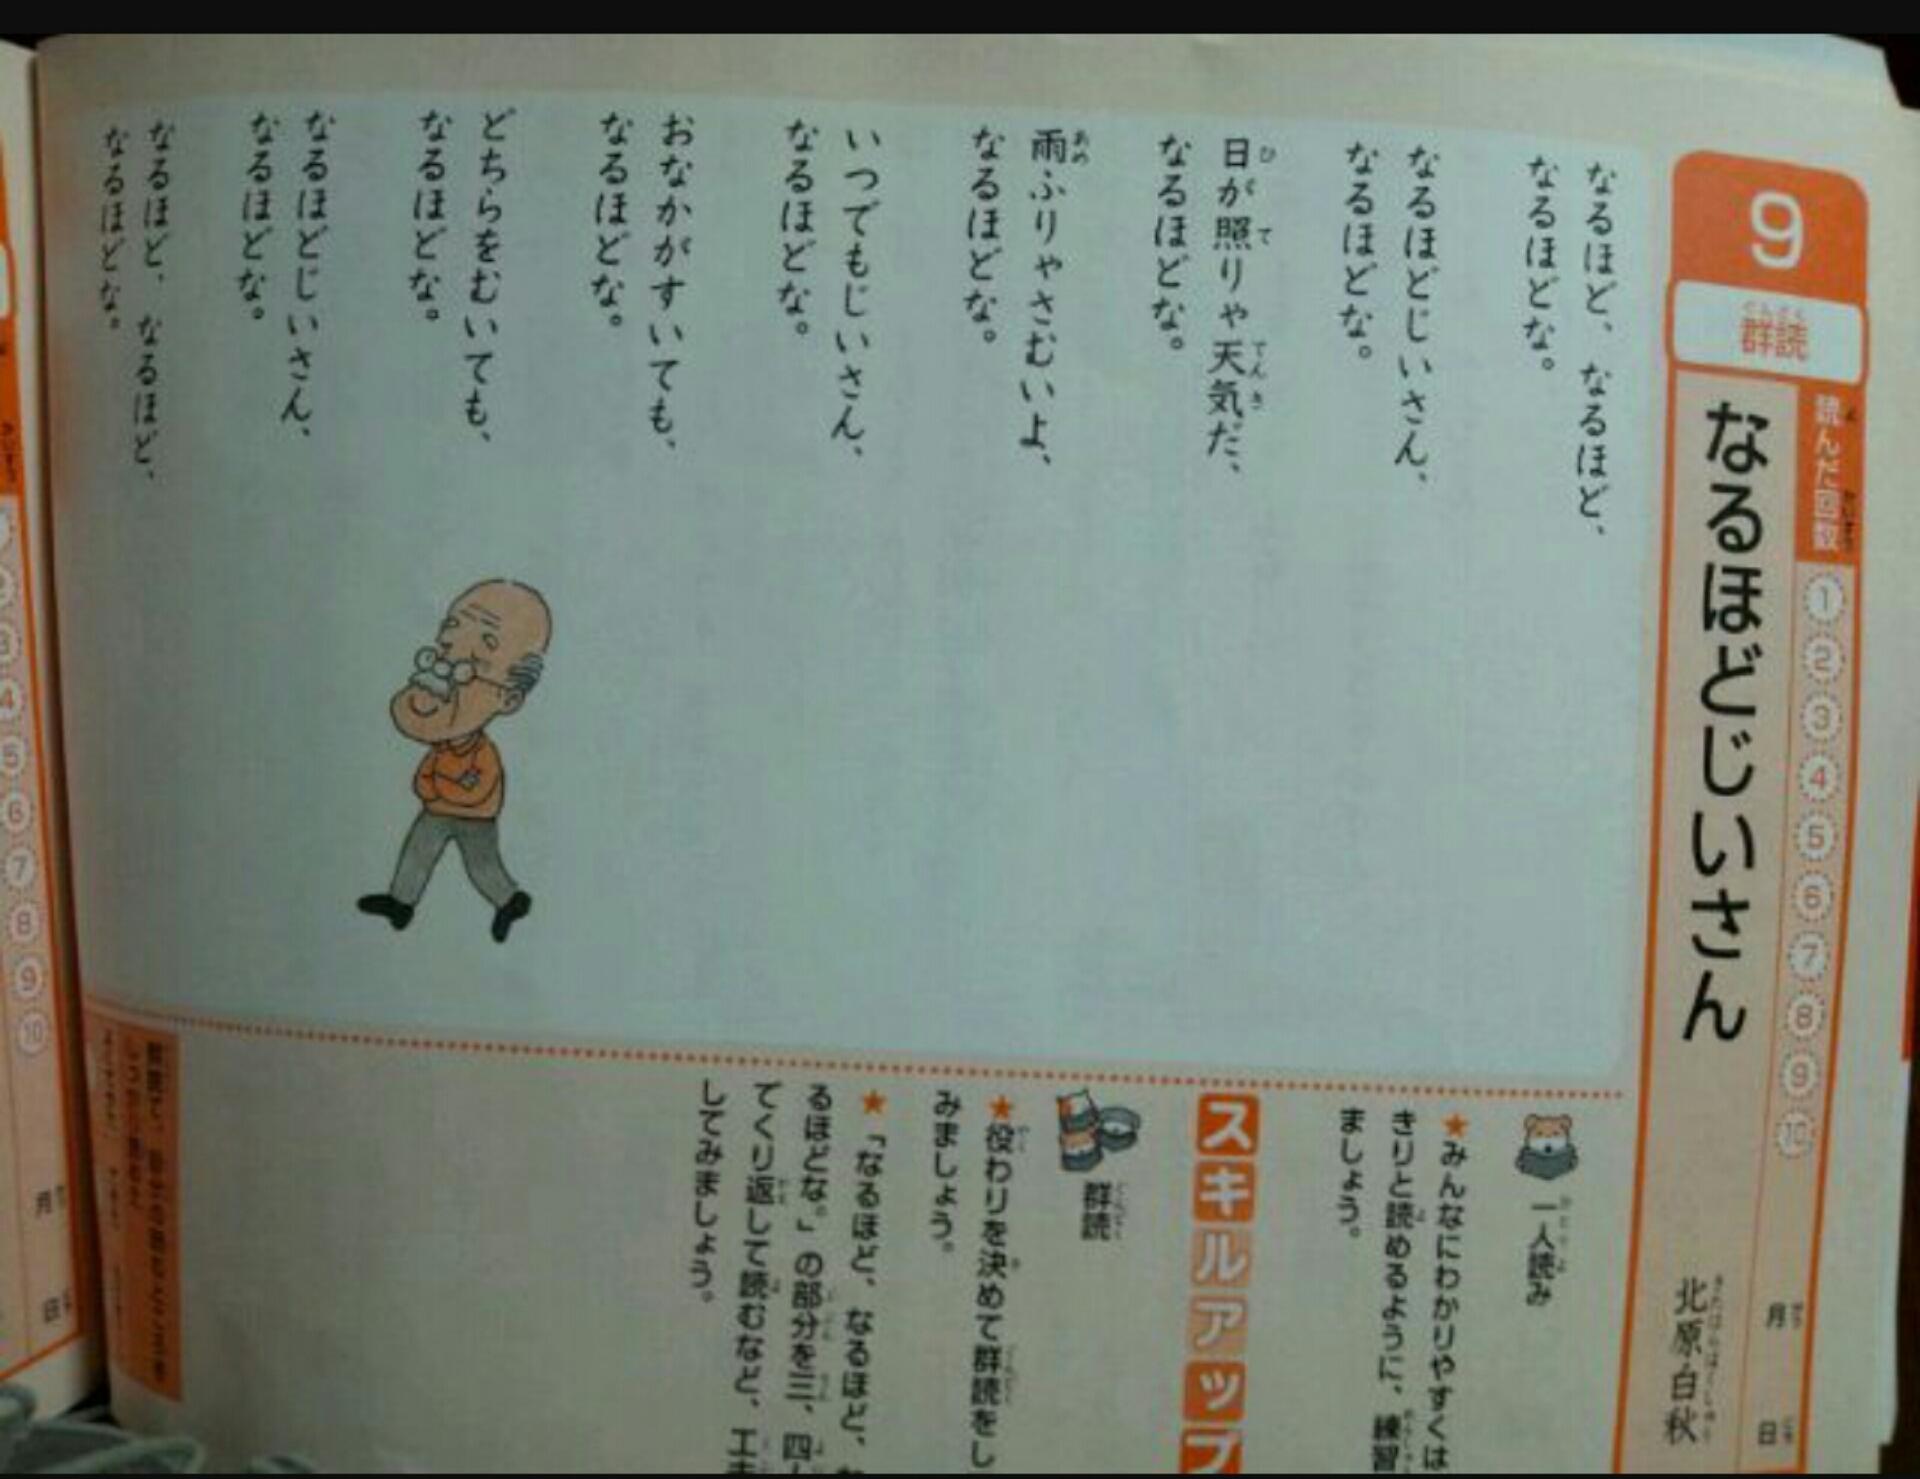 9
群読
読んだ回数
① ② ③ ④ ⑤ ⑥ ⑦ ⑧ ⑨ ⑩
月 日
なるほどじいさん
北原白秋
なるほど、なるほど、
なるほどな。
なるほどじいさん、
なるほどな。
日が照りゃ天気だ、
なるほどな。
雨ふりゃさむいよ、
なるほどな。
いつでもじいさん、
なるほどな。
おなかがすいても、
なるほどな。
どちらをむいても、
なるほどな。
なるほどじいさん、
なるほどな。
なるほど、なるほど、
なるほどな。
一人読み
★みんなにわかりやすくは
きりと読めるように、練習
ましょう。
スキルアップ
群読
★役わりを決めて群読をし
みましょう。
★「なるほど、なるほど、
るほどな。」の部分を三、四
てくり返して読むなど、工
してみましょう。
4
5
6
7
8
9
10
月
日